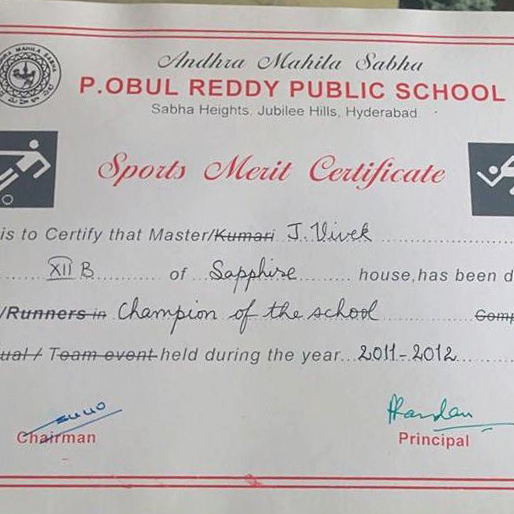 Andhra Mahila Sabha
P.OBUL REDDY PUBLIC SCHOOL
Sabha Heights, Jubilee Hills, Hyderabad
Sports Merit Certificate
is to Certify that Master/Kumari J. Vivek
XII B of Sapphire house, has been d
/Runners in Champion of the school Comp
ual / Team event held during the year 2011-2012
Chairman
Principal